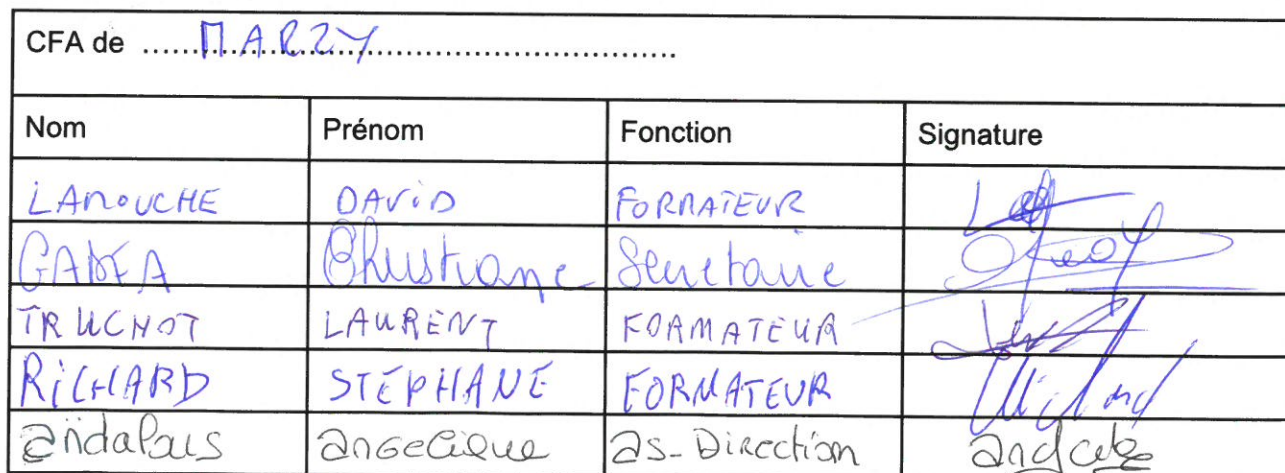 CFA de ......MARZY......................................................
Nom Prénom Fonction Signature
LAMOUCHE DAVID FORMATEUR
Christiane Secretaire
TRUCHOT LAURENT FORMATEUR
RICHARD STEPHANE FORMATEUR
andalous angelique as-Direction